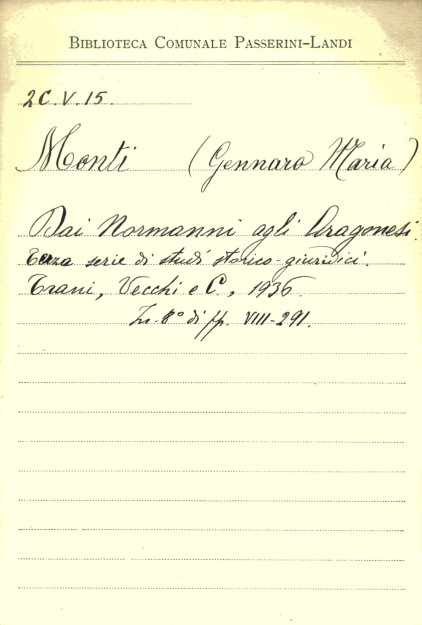 BIBLIOTECA COMUNALE PASSERINI-LANDI
2C.V.15.
Monti (Gennaro Maria)
Dai Normanni agli Aragonesi.
Terza serie di studî storico-giuridici.
Trani, Vecchi e C., 1936.
In-8° di pp. VIII-291.